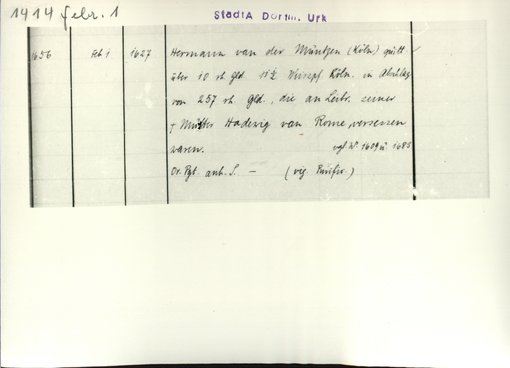 1414 febr. 1
StadtA Dortm. Urk
1656 Feb 1 1627 Hermann van der Müntzen (Köln) quitt.
über 10 rh. Gld. 11½ Köln. in Abschlag
von 257 rh. Gld., die an Leibr. seiner
+ Mutter Hadewig van Rome versessen
waren. vgl. Nr. 1609 u. 1685
Or. Pgt. anh. S. — (vig. Purific.)